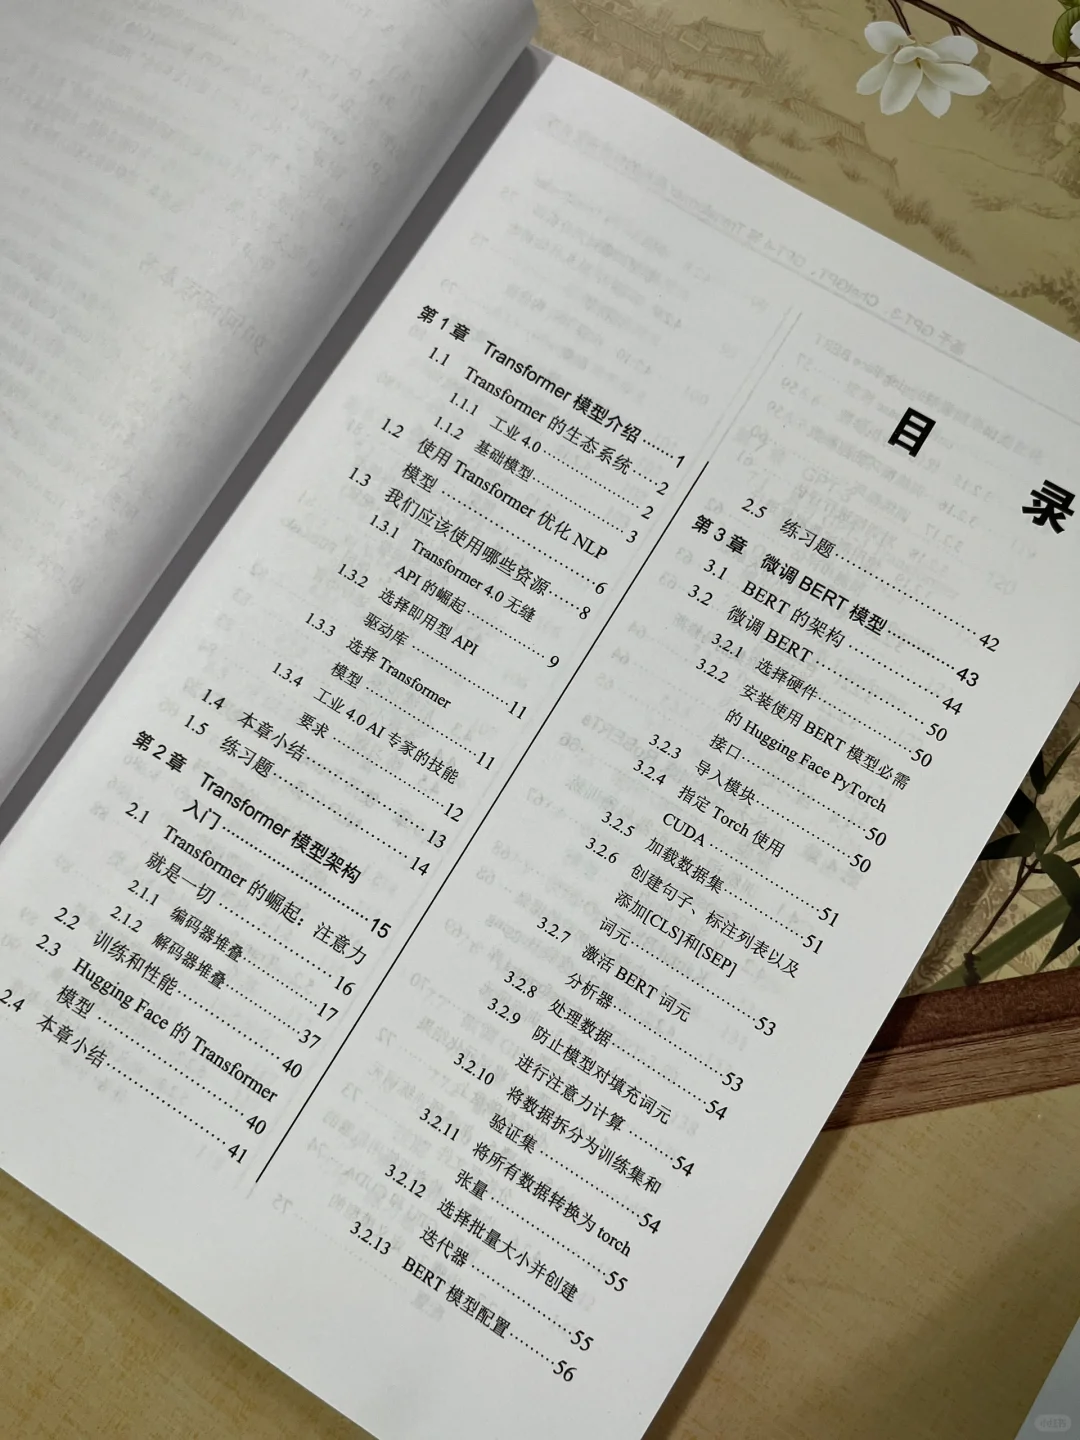 目 录
第1章 Transformer 模型介绍……1
1.1 Transformer 的生态系统……2
1.1.1 工业 4.0……2
1.1.2 基础模型……3
1.2 使用 Transformer 优化 NLP
模型……6
1.3 我们应该使用哪些资源……8
1.3.1 Transformer 4.0 无缝
API 的崛起……9
1.3.2 选择即用型 API
驱动库……11
1.3.3 选择 Transformer
模型……11
1.3.4 工业 4.0 AI 专家的技能
要求……12
1.4 本章小结……13
1.5 练习题……14
第2章 Transformer 模型架构
入门……15
2.1 Transformer 的崛起：注意力
就是一切……16
2.1.1 编码器堆叠……17
2.1.2 解码器堆叠……37
2.2 训练和性能……40
2.3 Hugging Face 的 Transformer
模型……40
2.4 本章小结……41
2.5 练习题……42
第3章 微调 BERT 模型……43
3.1 BERT 的架构……44
3.2 微调 BERT……50
3.2.1 选择硬件……50
3.2.2 安装使用 BERT 模型必需
的 Hugging Face PyTorch
接口……50
3.2.3 导入模块……50
3.2.4 指定 Torch 使用
CUDA……51
3.2.5 加载数据集……51
3.2.6 创建句子、标注列表以及
添加[CLS]和[SEP]
词元……53
3.2.7 激活 BERT 词元
分析器……53
3.2.8 处理数据……54
3.2.9 防止模型对填充词元
进行注意力计算……54
3.2.10 将数据拆分为训练集和
验证集……54
3.2.11 将所有数据转换为 torch
张量……55
3.2.12 选择批量大小并创建
迭代器……55
3.2.13 BERT 模型配置……56